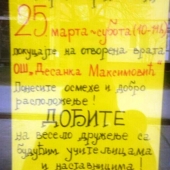 25 МАРТА-СУБОТА (10-11h)
ПОКУЦАЈТЕ НА ОТВОРЕНА ВРАТА
ОШ „ДЕСАНКА МАКСИМОВИЋ"
ПОНЕСИТЕ ОСМЕХЕ И ДОБРО
РАСПОЛОЖЕЊЕ!
ДОЂИТЕ
НА ВЕСЕЛО ДРУЖЕЊЕ СА
БУДУЋИМ УЧИТЕЉИЦАМА
И НАСТАВНИЦИМА!